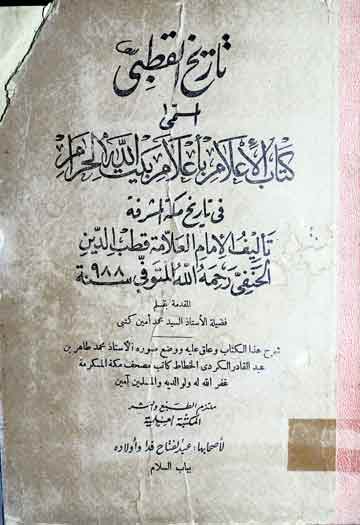 تاريخ القطبي
المسمى
كتاب الإعلام بأعلام بيت الله الحرام
في تاريخ مكة المشرفة
تأليف الإمام العلامة قطب الدين
الحنفي رحمه الله المتوفي سنة ٩٨٨
المقدمة بقلم
فضيلة الأستاذ السيد محمد أمين كتبي
شرح هذا الكتاب وعلق عليه ووضع صوره الأستاذ محمد طاهر بن
عبد القادر الكردي الخطاط كاتب مصحف مكة المكرمة
غفر الله له ولوالديه والمسلمين آمين
ملتزم الطبع والنشر
المكتبة العلمية
لأصحابها: عبد الفتاح فدا وأولاده
بباب السلام